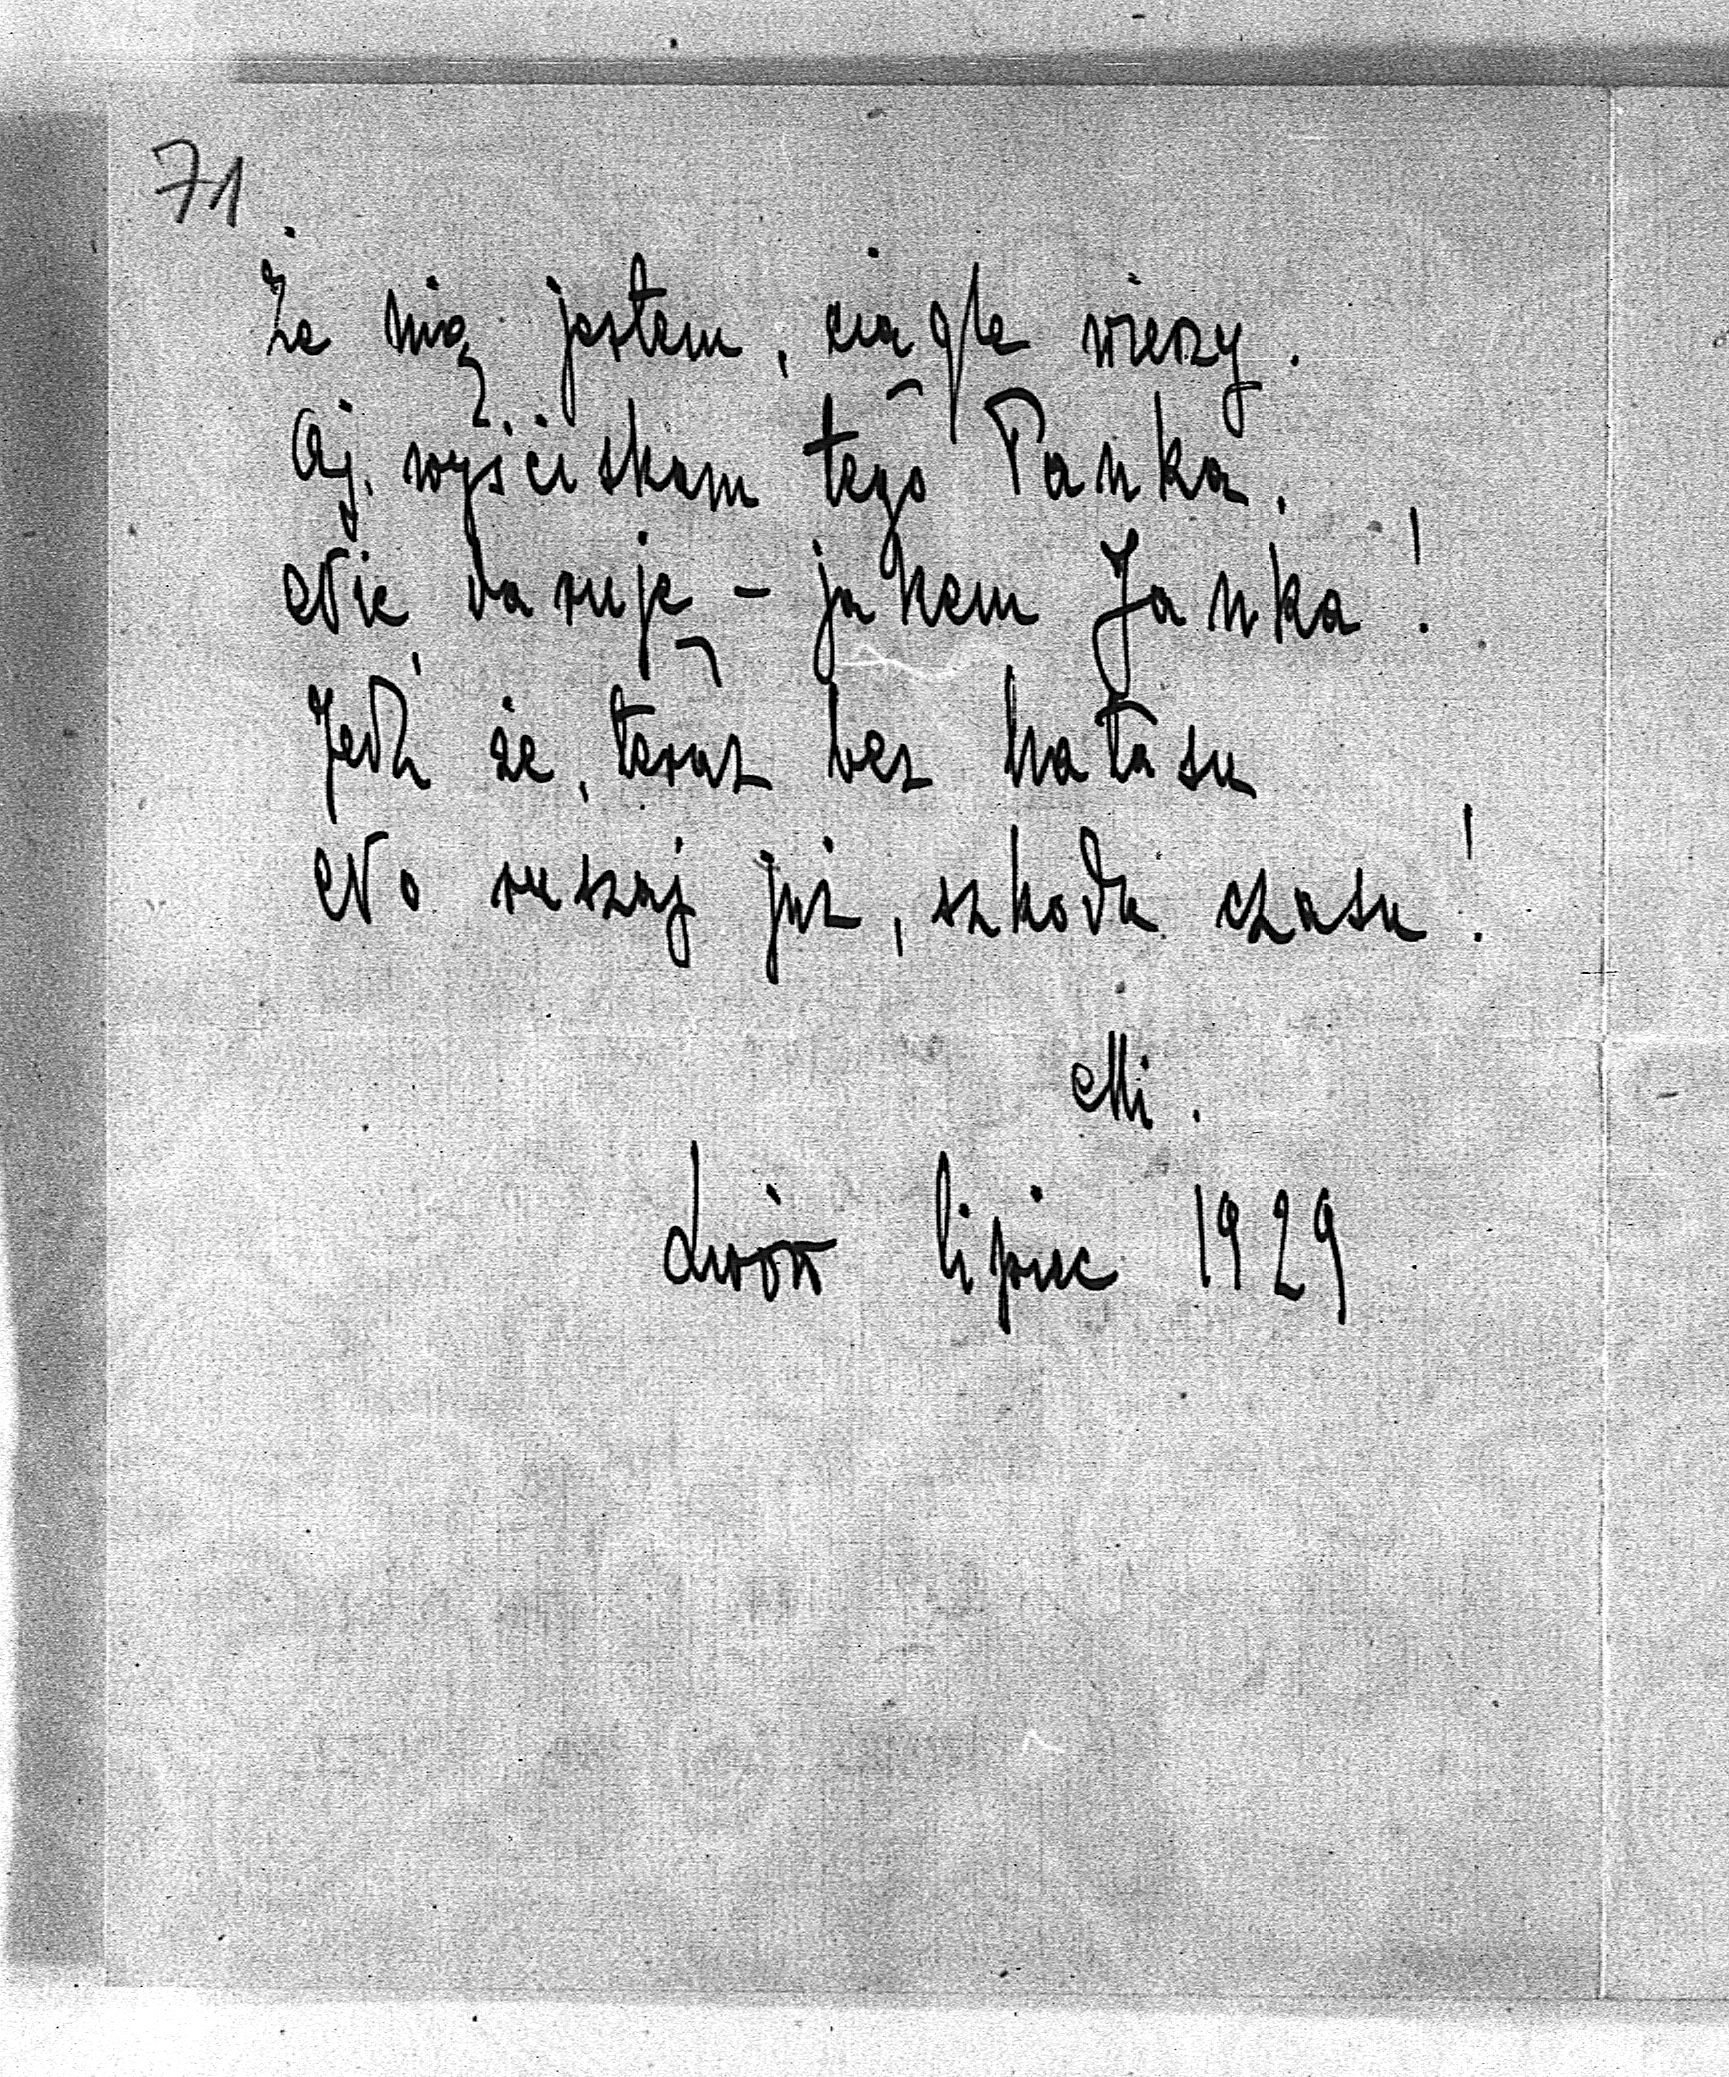 71
Że nią jestem, ciągle wierzy.
Aj, wyściskam tego Panka,
Nie daruję – jakem Janka!
Jedź że, teraz bez hałasu
No ruszaj już, szkoda czasu!
Mi.
Lwów lipiec 1929